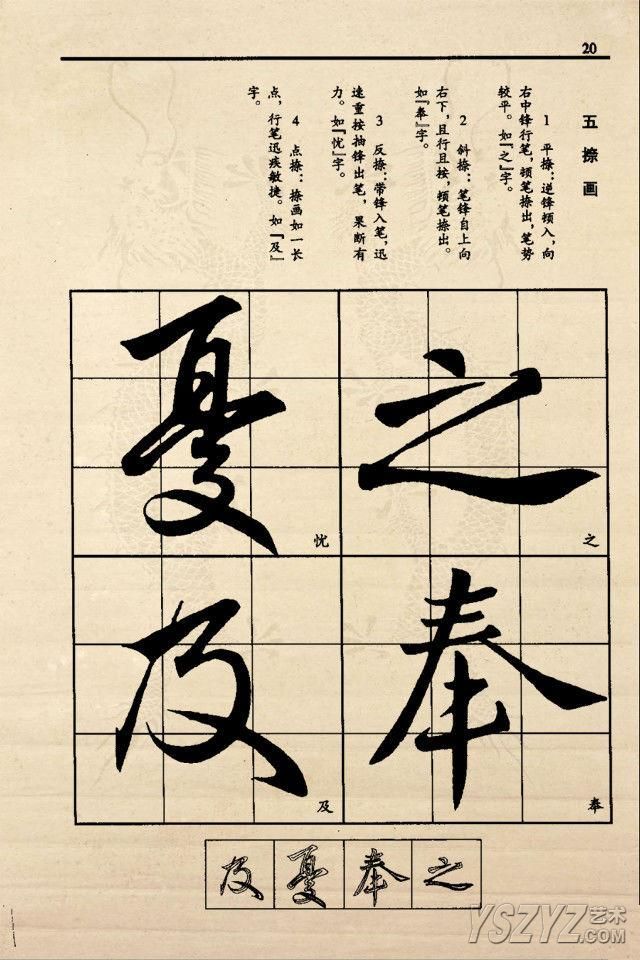 20
五 捺 画
1 平捺：逆锋顿入，向
右中锋行笔，顿笔捺出，笔势
较平。如『之』字。
2 斜捺：笔锋自上向
右下，且行且按，顿笔捺出。
如『奉』字。
3 反捺：带锋入笔，迅
速重按抽锋出笔，果断有
力。如『忧』字。
4 点捺：捺画如一长
点，行笔迅疾敏捷。如『及』
字。
之
之
奉
奉
憂
忧
及
及
之 奉 憂 及
YSZYZ 艺术
.COM